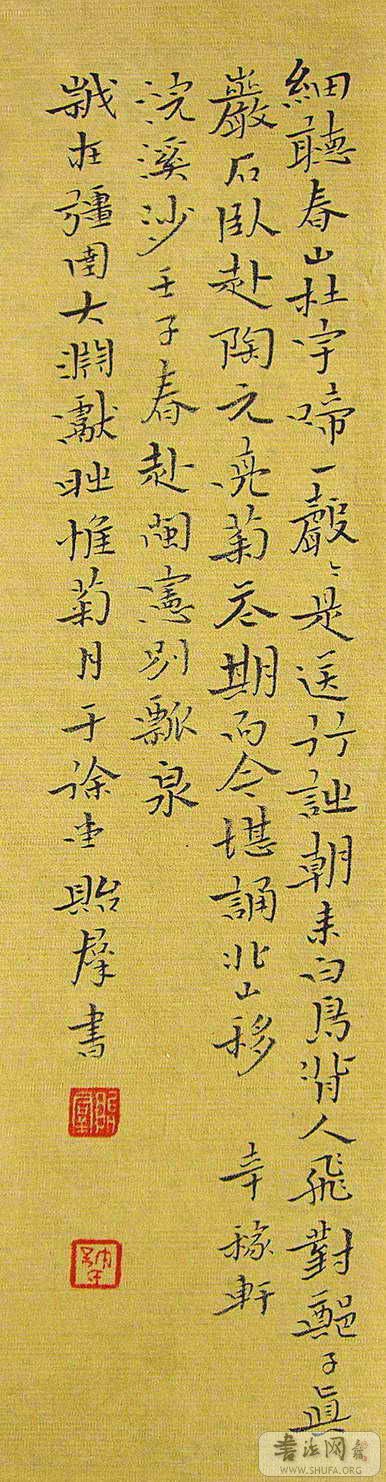 細聽春山杜宇啼一聲〻是送行詩朝來白鳥背人飛對鄭子真
巖石臥赴陶元亮菊花期而今堪誦北山移 辛稼軒
浣溪沙壬子春赴閩憲別瓢泉
歲在彊圉大淵獻時惟菊月于徐貽羣書
书法网
WWW.SHUFA.ORG